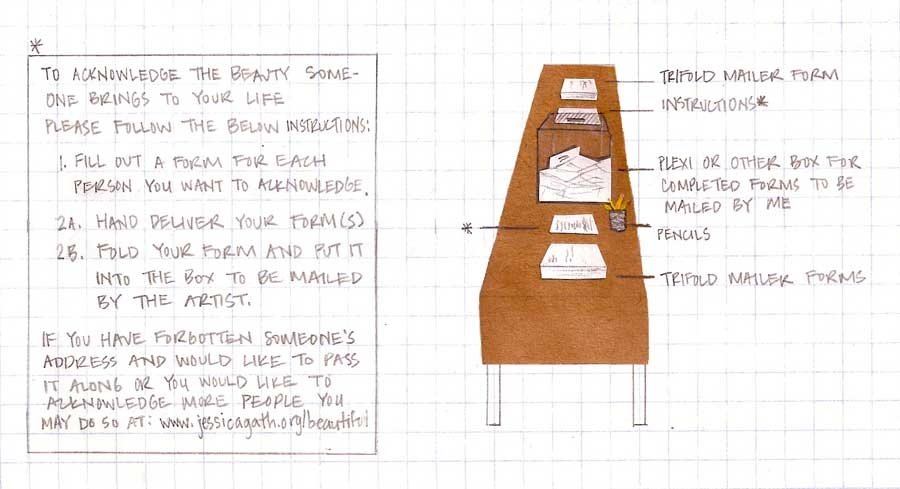 *
TO ACKNOWLEDGE THE BEAUTY SOME-
ONE BRINGS TO YOUR LIFE
PLEASE FOLLOW THE BELOW INSTRUCTIONS:
1. FILL OUT A FORM FOR EACH
PERSON YOU WANT TO ACKNOWLEDGE.
2A. HAND DELIVER YOUR FORM(S)
2B. FOLD YOUR FORM AND PUT IT
INTO THE BOX TO BE MAILED
BY THE ARTIST.
IF YOU HAVE FORGOTTEN SOMEONE'S
ADDRESS AND WOULD LIKE TO PASS
IT ALONG OR YOU WOULD LIKE TO
ACKNOWLEDGE MORE PEOPLE YOU
MAY DO SO AT: www.jessicagath.org/beautiful
TRIFOLD MAILER FORM
INSTRUCTIONS*
PLEXI OR OTHER BOX FOR
COMPLETED FORMS TO BE
MAILED BY ME
*
PENCILS
TRIFOLD MAILER FORMS